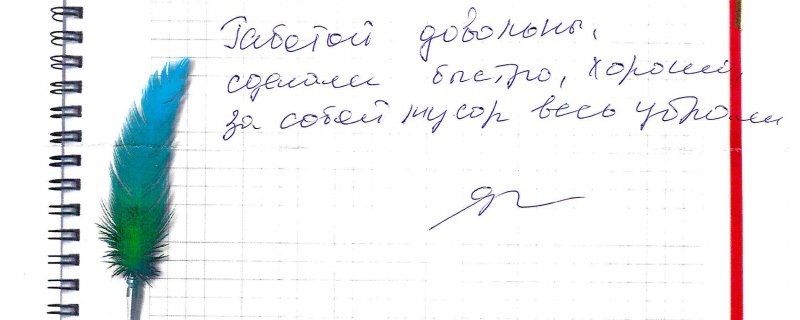 Работой довольны,
сделали быстро, хорошо,
за собой мусор весь убрали